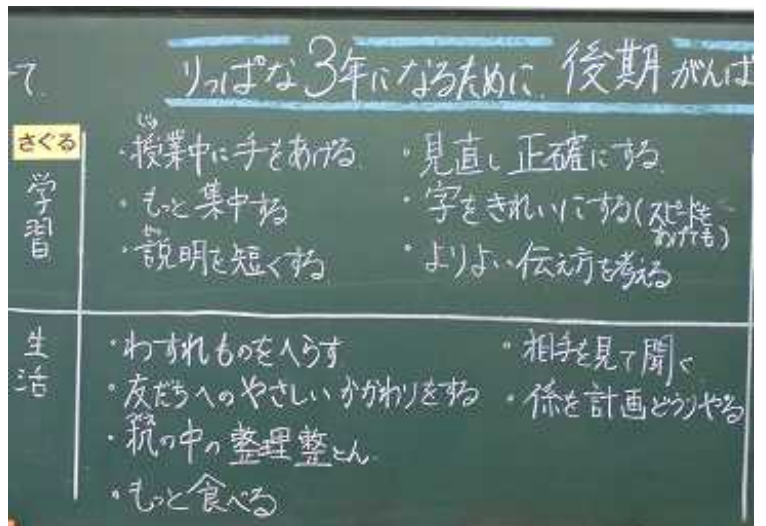 て
りっぱな3年になるために 後期 がんば
さぐる
学習
・授業中に手をあげる
じゅ
・もっと集中する
・説明を短くする
せつ
・見直し 正確にする
・字をきれいにする(スピードをあげても)
・よりよい伝え方を考える
生活
・わすれものをへらす
・友だちへのやさしいかかわりをする
の中の整理整とん
・もっと食べる
・相手を見て聞く
・係を計画どうりやる